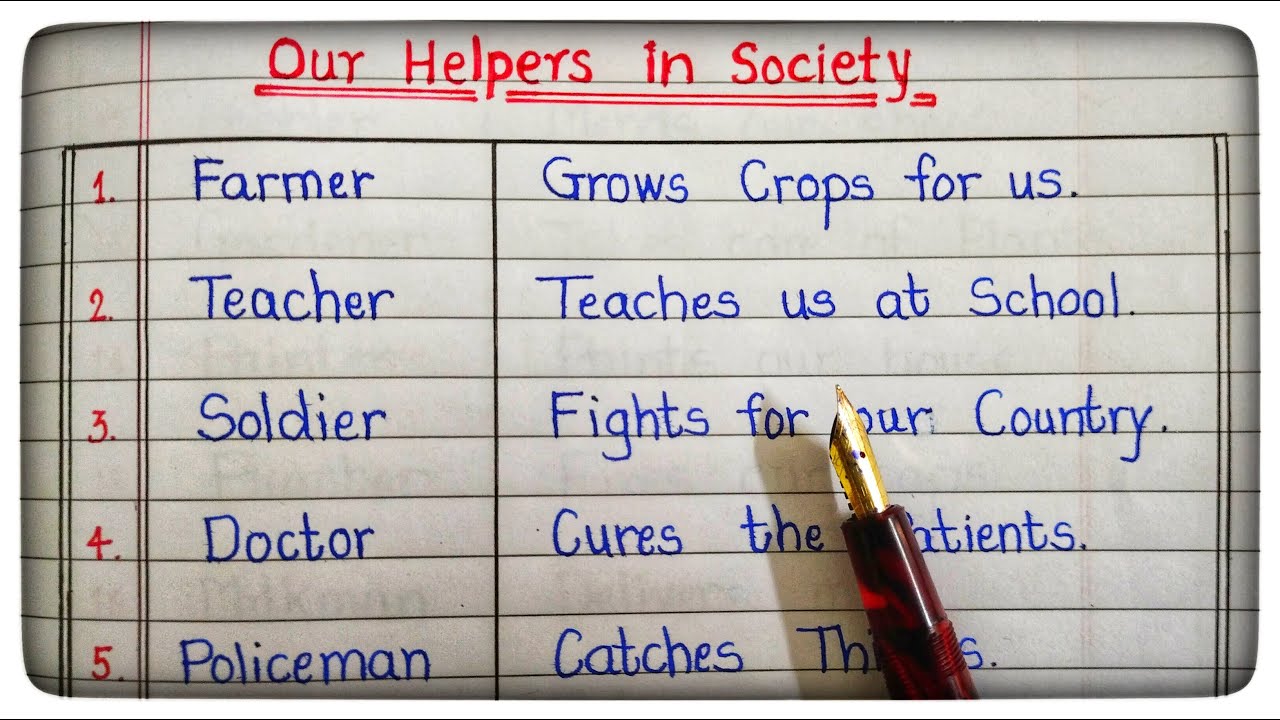 Our Helpers in Society
1. Farmer Grows Crops for us.
2. Teacher Teaches us at School.
3. Soldier Fights for our Country.
4. Doctor Cures the Patients.
5. Policeman Catches